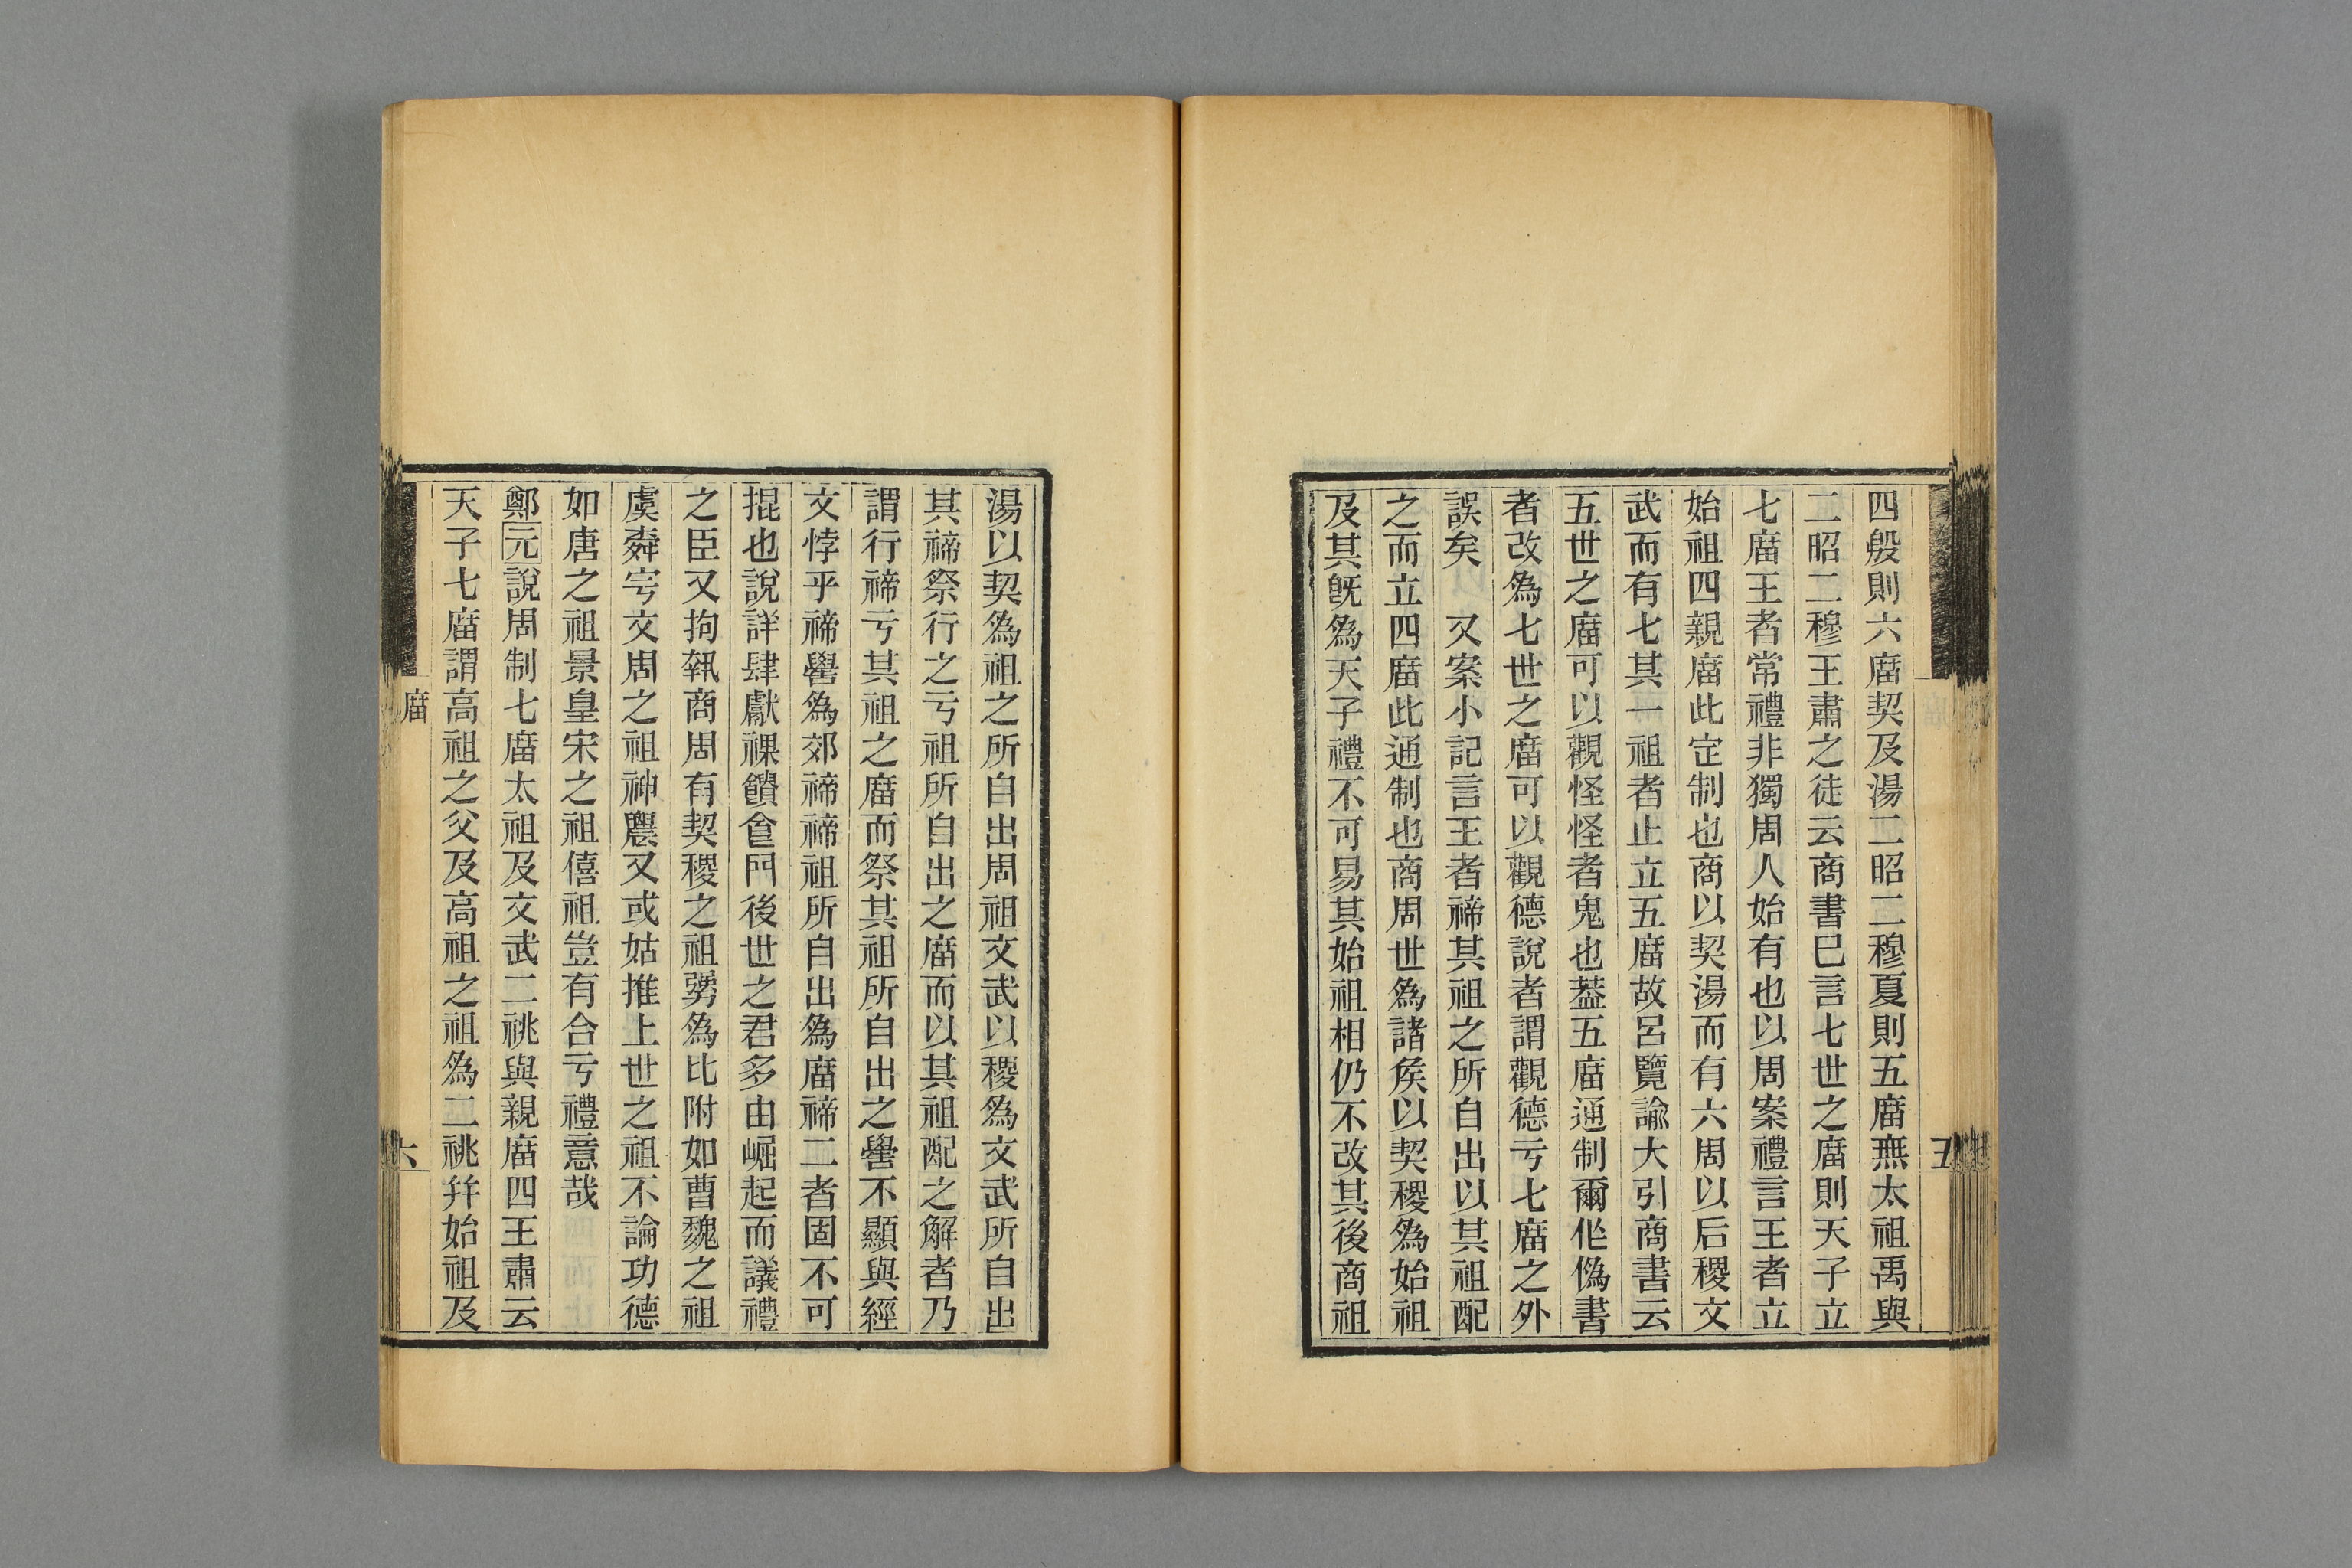 四殷則六庿契及湯二昭二穆夏則五庿無太祖禹與
二昭二穆王肅之徒云商書巳言七世之庿則天子立
七庿王者常禮非獨周人始有也以周案禮言王者立
始祖四親庿此定制也商以契湯而有六周以后稷文
武而有七其一祖者止立五庿故呂覽諭大引商書云
五世之庿可以觀怪怪者鬼也葢五庿通制爾作僞書
者改為七世之庿可以觀德說者謂觀德亏七庿之外
誤矣　又案小記言王者禘其祖之所自出以其祖配
之而立四庿此通制也商周世為諸矦以契稷為始祖
及其旣為天子禮不可易其始祖相仍不改其後商祖
五
湯以契為祖之所自出周祖文武以稷為文武所自出
其禘祭行之亏祖所自出之庿而以其祖配之解者乃
謂行禘亏其祖之庿而祭其祖所自出之嚳不顯與經
文悖乎禘嚳為郊禘禘祖所自出為庿禘二者固不可
掍也說詳肆獻祼饋食門後世之君多由崛起而議禮
之臣又拘執商周有契稷之祖彊為比附如曹魏之祖
虞舜宇文周之祖神農又或姑推上世之祖不論功德
如唐之祖景皇宋之祖僖祖豈有合亏禮意哉
鄭元說周制七庿太祖及文武二祧與親庿四王肅云
天子七庿謂高祖之父及高祖之祖為二祧幷始祖及
庿
六